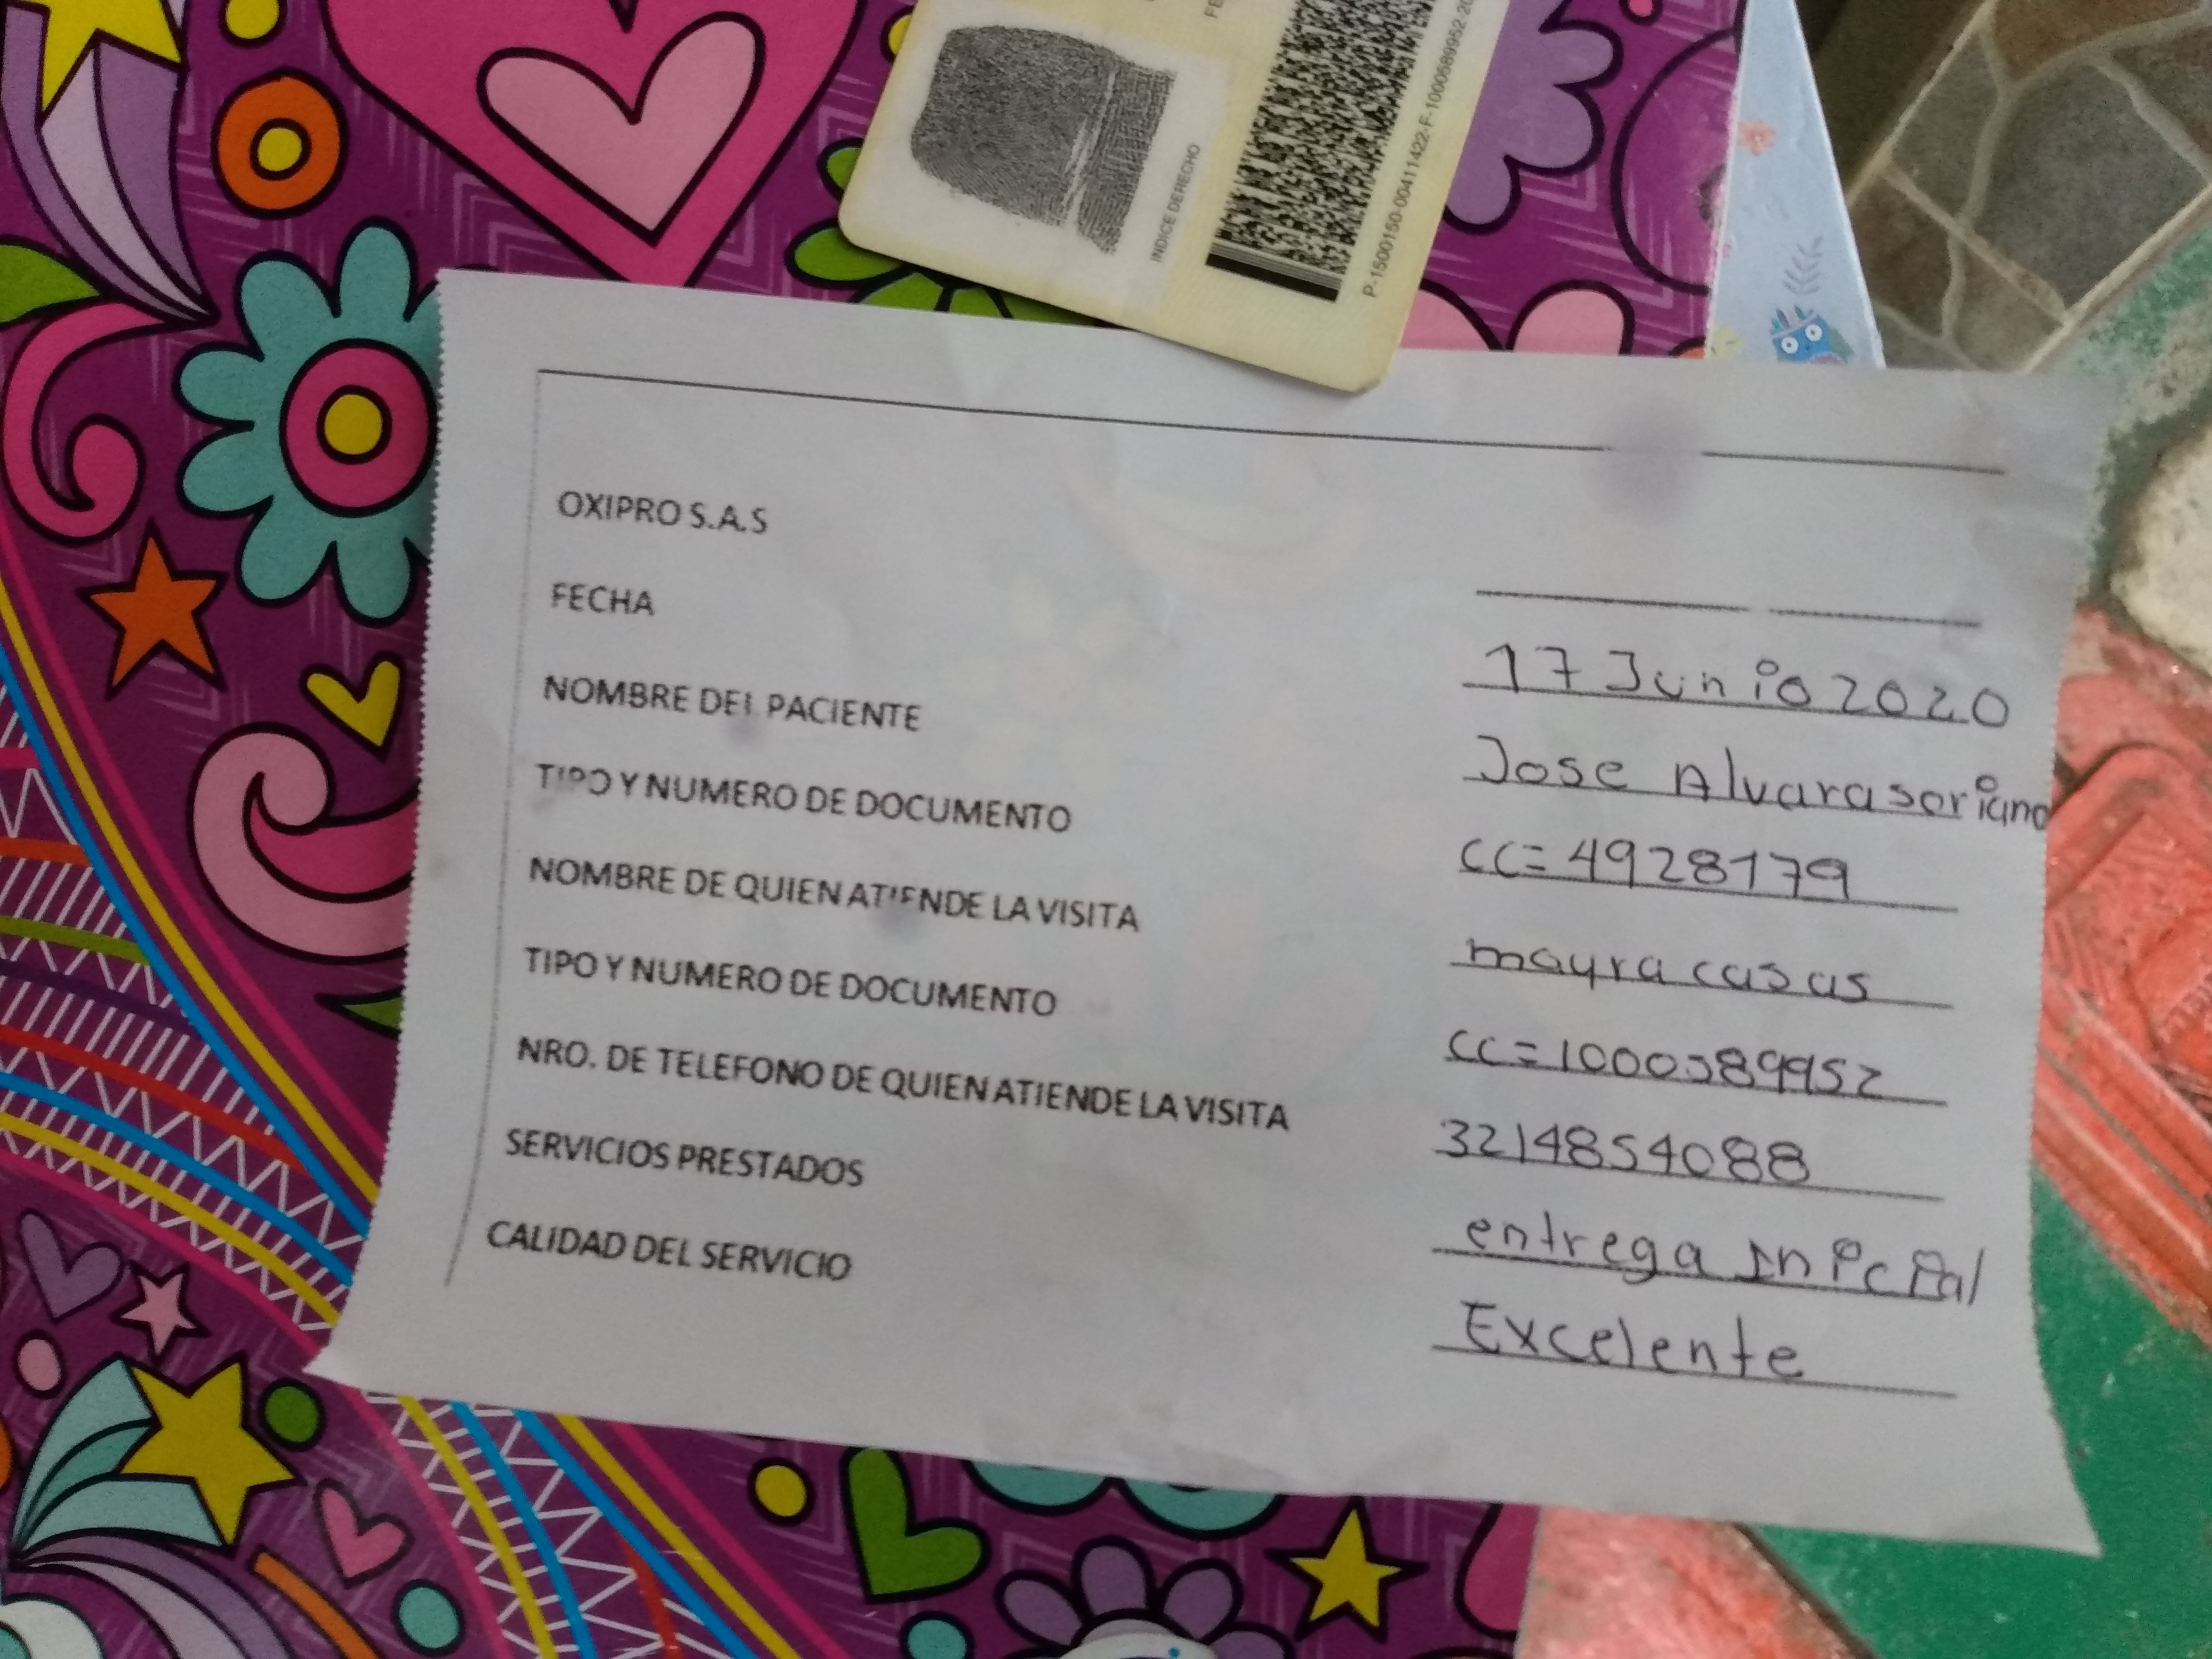 INDICE DERECHO
P-1500150-00411422-F-1000589952-20
OXIPRO S.A.S
FECHA 17 Junio 2020
NOMBRE DEL PACIENTE Jose Alvara soriano
TIPO Y NUMERO DE DOCUMENTO CC=4928179
NOMBRE DE QUIEN ATIENDE LA VISITA mayra casas
TIPO Y NUMERO DE DOCUMENTO CC=1000589952
NRO. DE TELEFONO DE QUIEN ATIENDE LA VISITA 3214854088
SERVICIOS PRESTADOS entrega Inicial
CALIDAD DEL SERVICIO Excelente